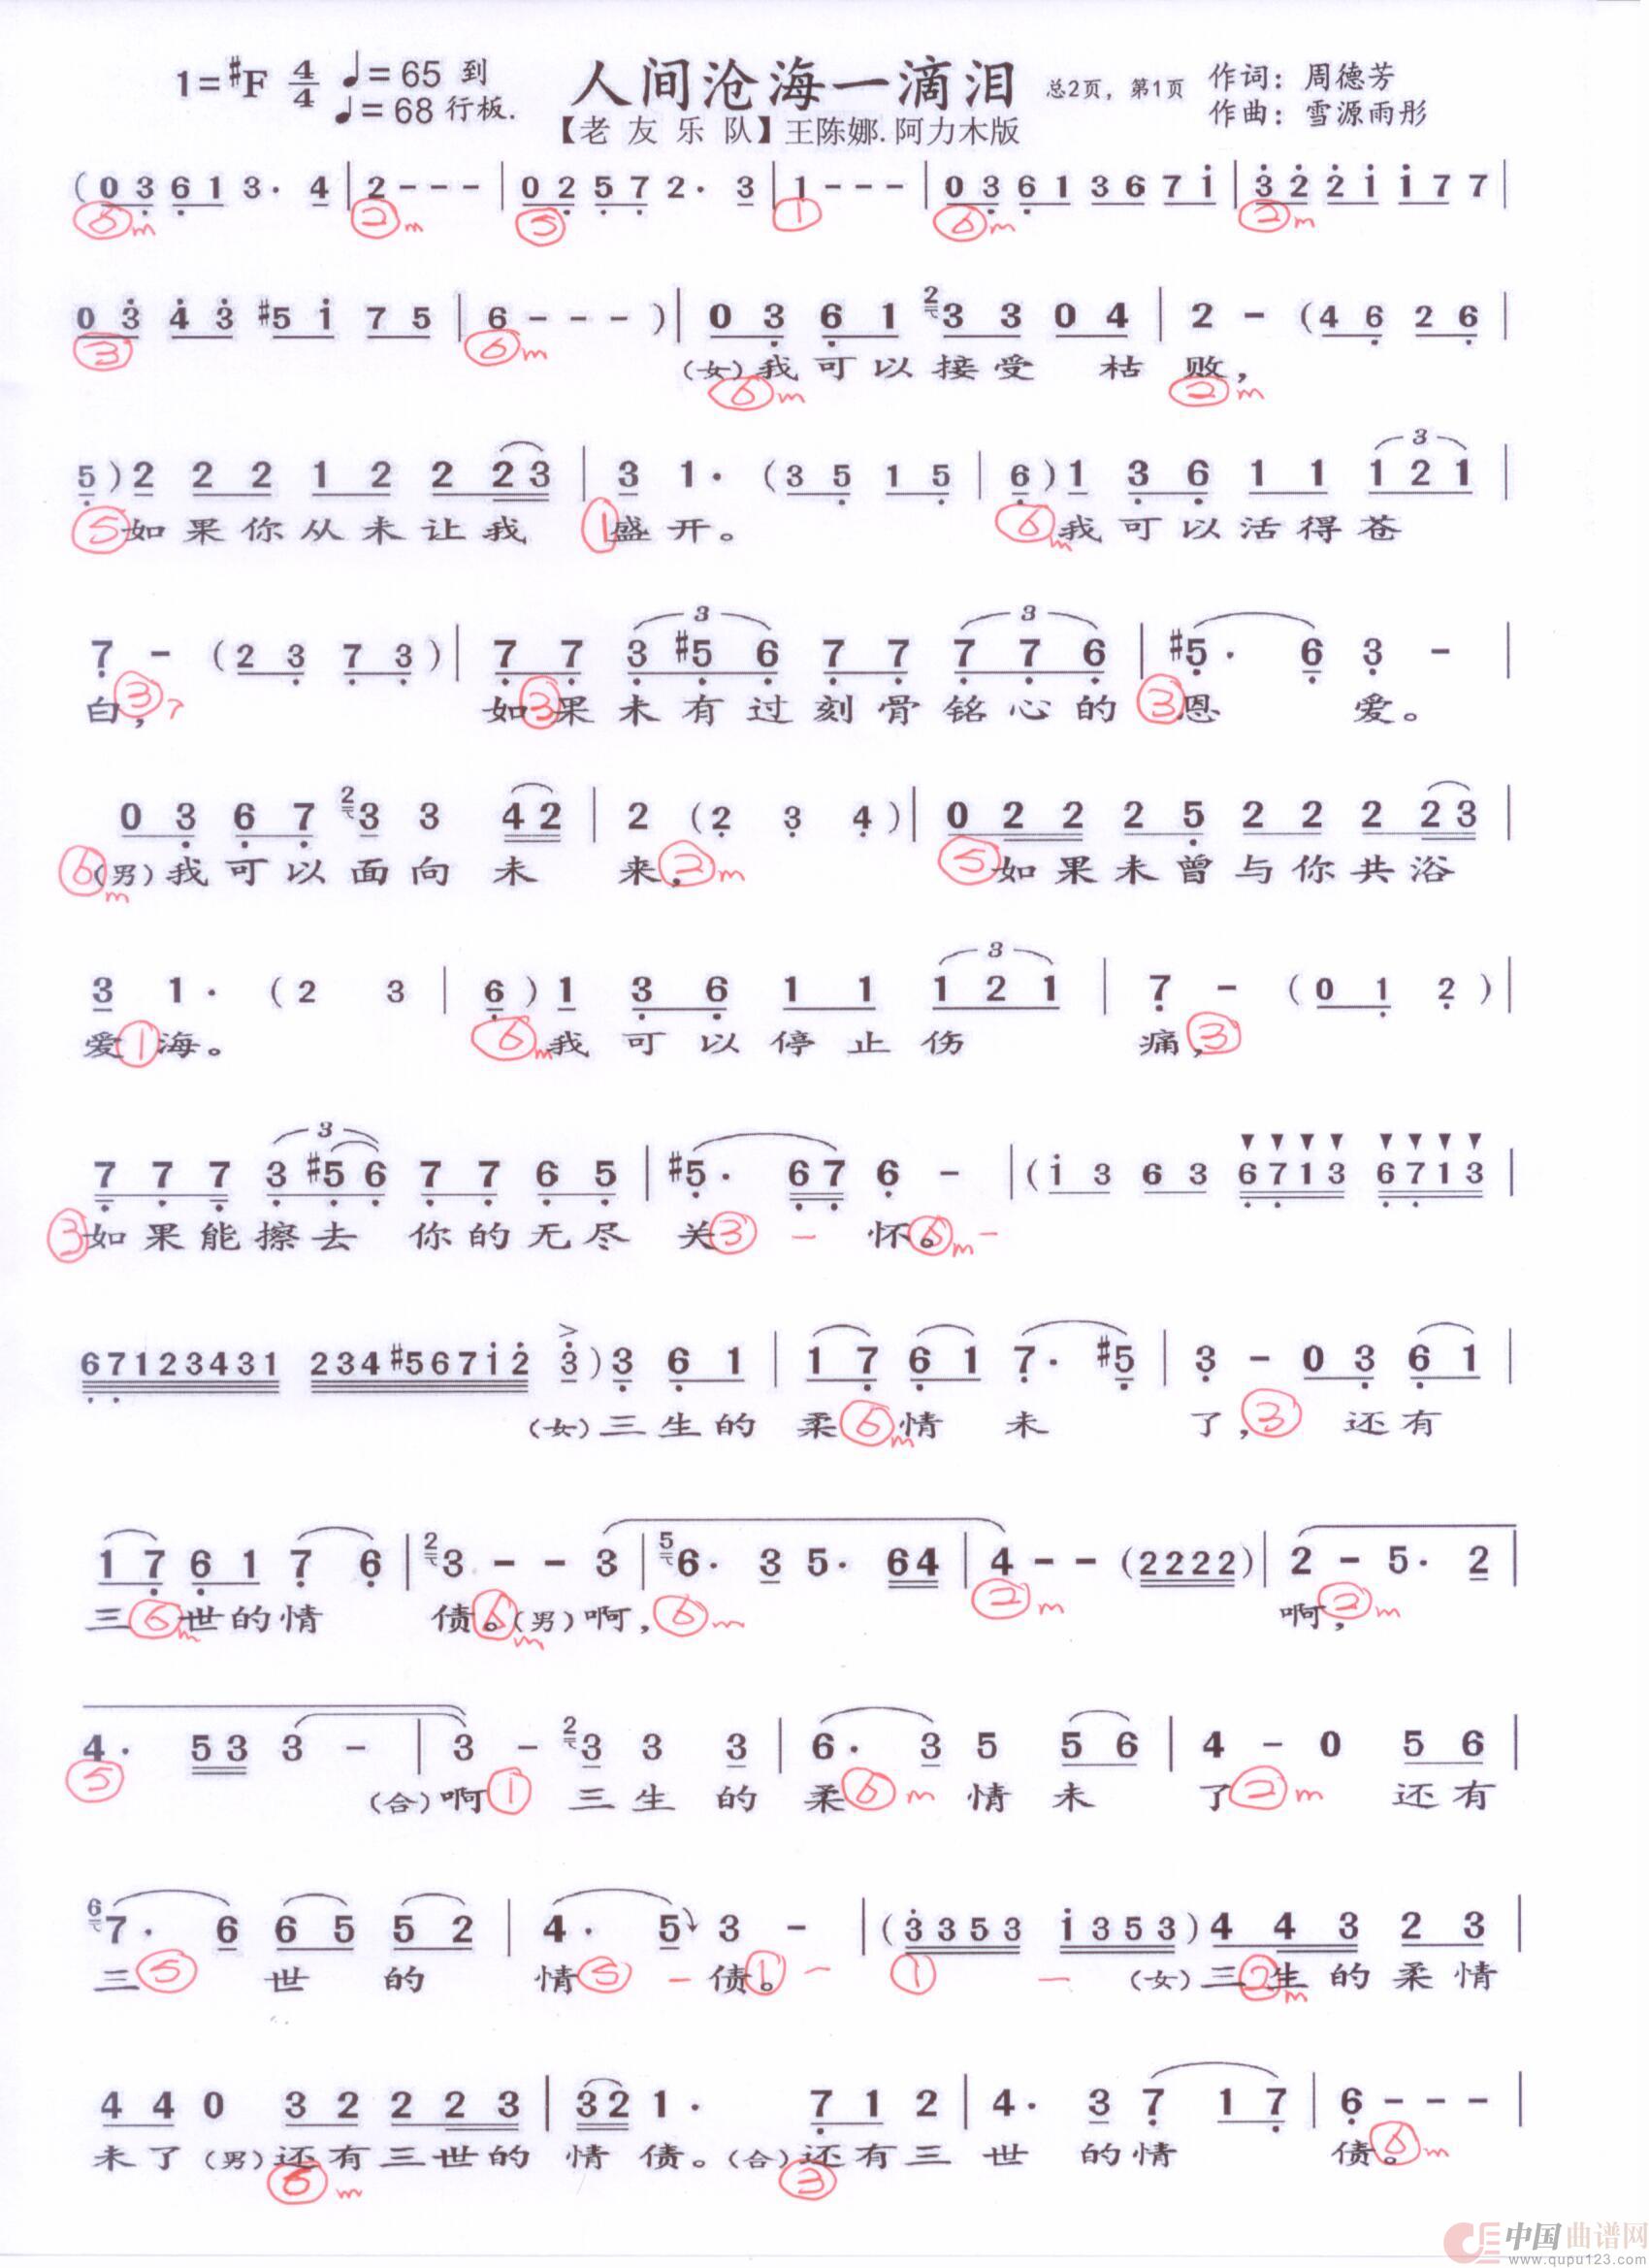 1=#F 4/4 ♩=65 到
♩=68 行板.
人间沧海一滴泪
总2页，第1页
作词：周德芳
作曲：雪源雨彤
【老 友 乐 队】王陈娜.阿力木版
( 0 3 6 1 3 · 4 | 2 - - - | 0 2 5 7 2 · 3 | 1 - - - | 0 3 6 1 3 6 7 1 | 3 2 2 1 1 7 7 |
⑥m ②m ⑤ ① ⑥m ②m
0 3 4 3 #5 1 7 5 | 6 - - - ) | 0 3 6 1 2 3 3 0 4 | 2 - ( 4 6 2 6 |
③ ⑥m
(女)我可以接受 枯 败，
⑥m ②m
5 ) 2 2 2 1 2 2 2 3 | 3 1 · ( 3 5 1 5 | 6 ) 1 3 6 1 1 1 2 1 |
3
⑤如果你从未让我 ①盛开。 ⑥m我可以活得苍
7 - ( 2 3 7 3 ) | 7 7 3 #5 6 7 7 7 7 6 | #5 · 6 3 - |
3 3
白，③7 如③果未有过刻骨铭心的 ③恩 爱。
0 3 6 7 2 3 3 4 2 | 2 ( 2 3 4 ) | 0 2 2 2 5 2 2 2 2 3 |
⑥m(男)我可以面向 未 来，②m ⑤如果未曾与你共浴
3 1 · ( 2 3 | 6 ) 1 3 6 1 1 1 2 1 | 7 - ( 0 1 2 ) |
3
爱①海。 ⑥m我可以停止伤 痛，③
7 7 7 3 #5 6 7 7 6 5 | #5 · 6 7 6 - | ( 1 3 6 3 6 7 1 3 6 7 1 3 |
3
③如果能擦去 你的无尽 关③ - 怀。⑥m -
6 7 1 2 3 4 3 1 2 3 4 #5 6 7 1 2 3 ) 3 6 1 | 1 7 6 1 7 · #5 | 3 - 0 3 6 1 |
(女)三生的 柔⑥m情 未 了，③ 还有
1 7 6 1 7 6 | 2 3 - - 3 | 5 6 · 3 5 · 6 4 | 4 - - ( 2 2 2 2 ) | 2 - 5 · 2 |
三⑥m世的情 债。⑥m(男)啊，⑥m ②m 啊，②m
4 · 5 3 3 - | 3 - 2 3 3 3 | 6 · 3 5 5 6 | 4 - 0 5 6 |
⑤ (合)啊 ① 三生 的 柔⑥m 情 未 了②m 还有
6 7 · 6 6 5 5 2 | 4 · 5 3 - | ( 3 3 5 3 1 3 5 3 ) 4 4 3 2 3 |
三⑤ 世 的 情⑤ - 债。① - ① - (女)三②m生的柔情
4 4 0 3 2 2 2 3 | 3 2 1 · 7 1 2 | 4 · 3 7 1 7 | 6 - - - |
未了(男)还有三世的 情债。(合)还有三 世 的情 债。⑥m
⑥m ③
中国曲谱网
www.qupu123.com